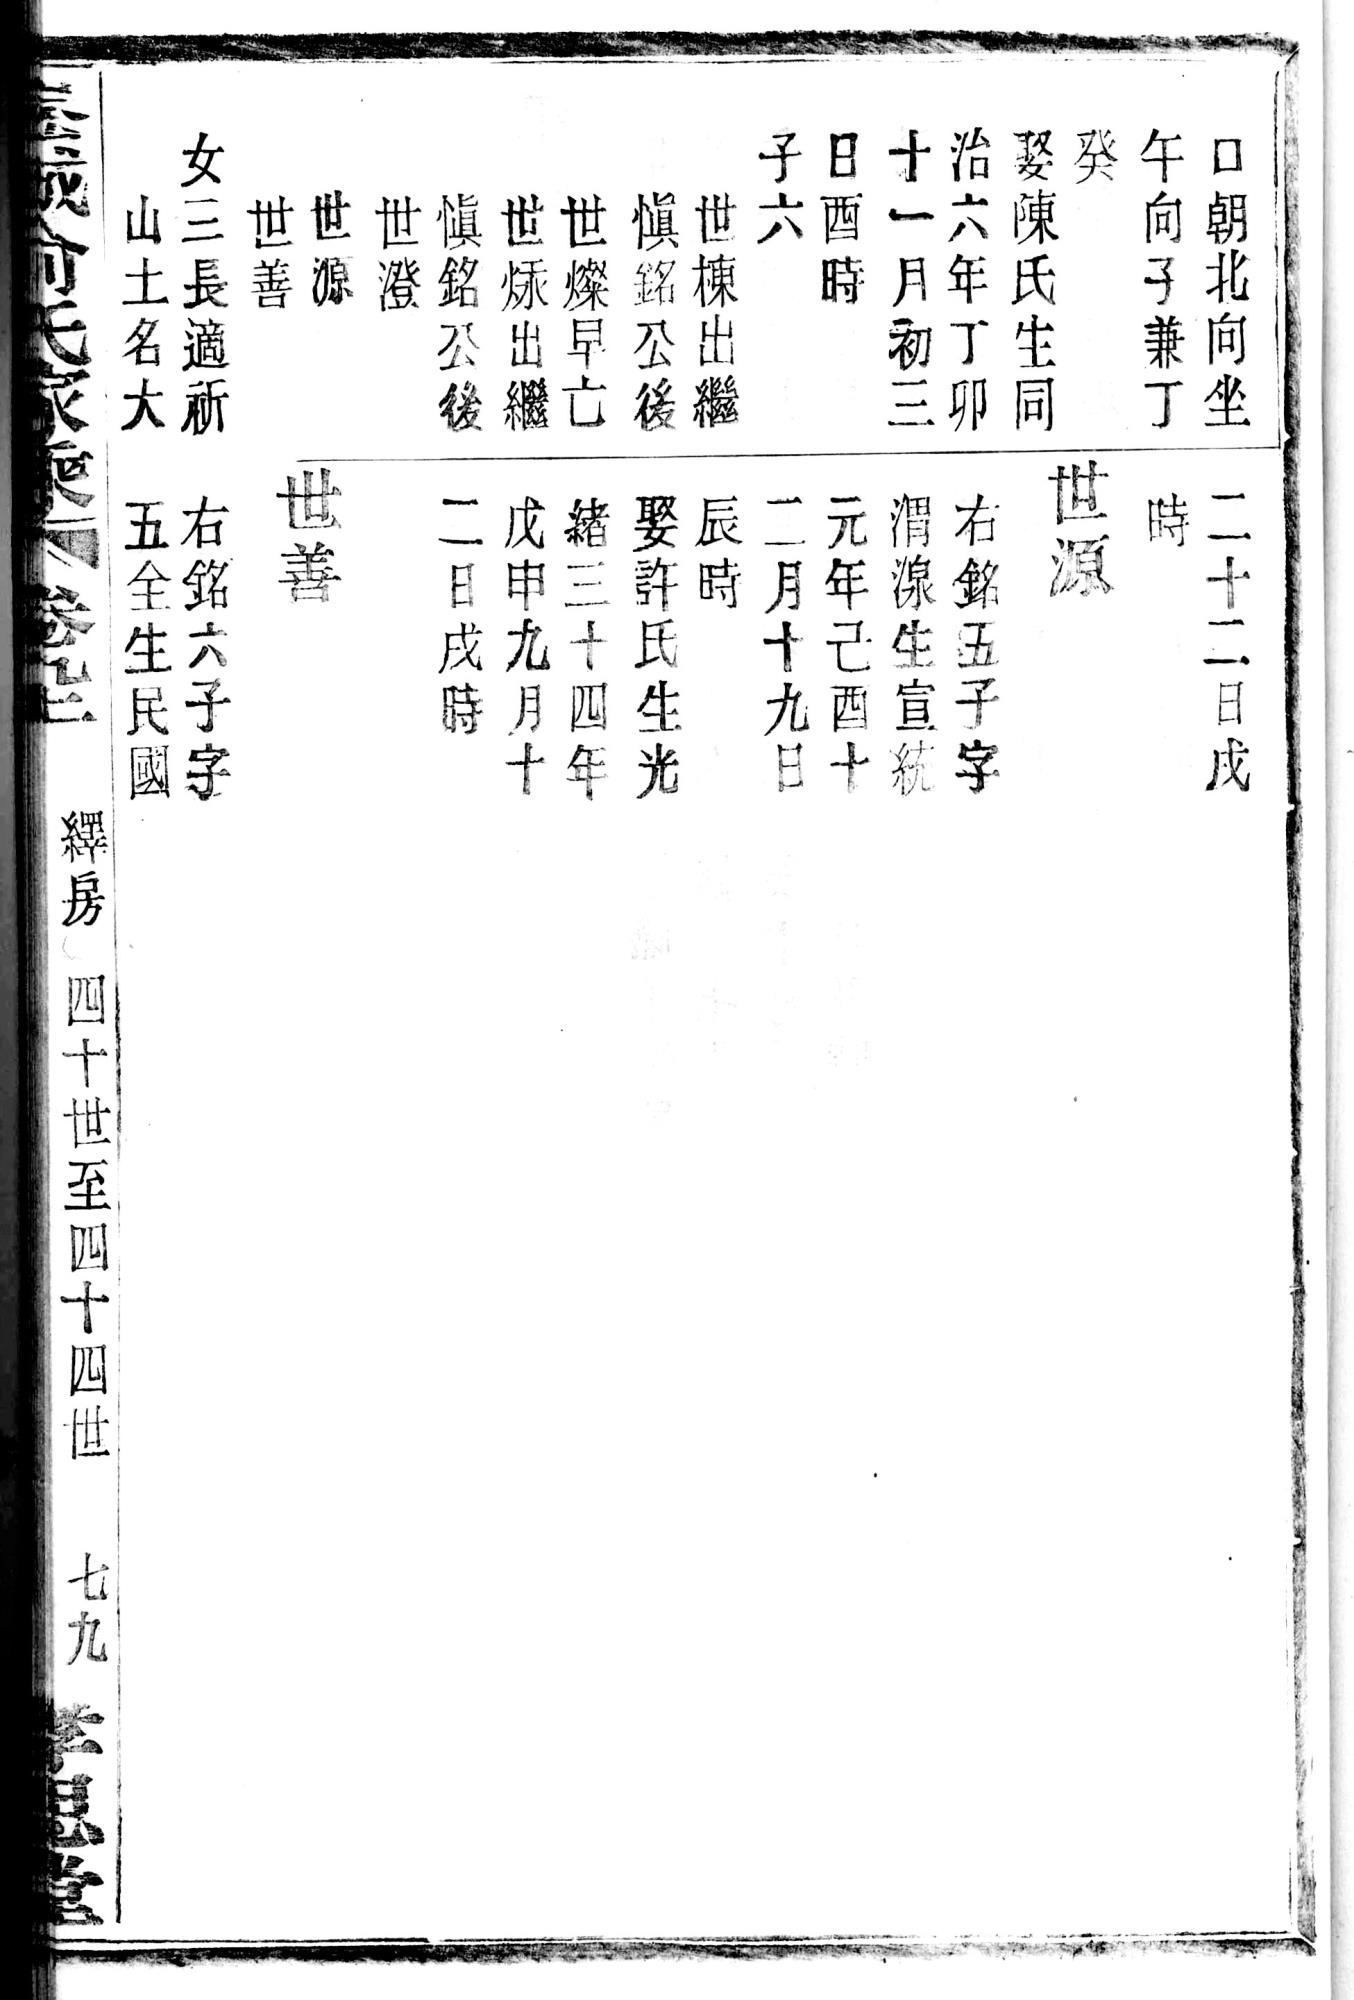 口朝北向坐
午向子兼丁
癸
娶陳氏生同
治六年丁卯
十一月初三
日酉時
子六
世棟出繼
愼銘公後
世燦早亡
世烁出繼
愼銘公後
世澄
世源
世善
女三長適祈
山土名大
二十二日戌
時
世源
右銘五子字
渭湶生宣統
元年己酉十
二月十九日
辰時
娶許氏生光
緒三十四年
戊申九月十
二日戌時
世善
右銘六子字
五全生民國
俞氏家乘
繹房 四十世至四十四世 七九
孝思堂